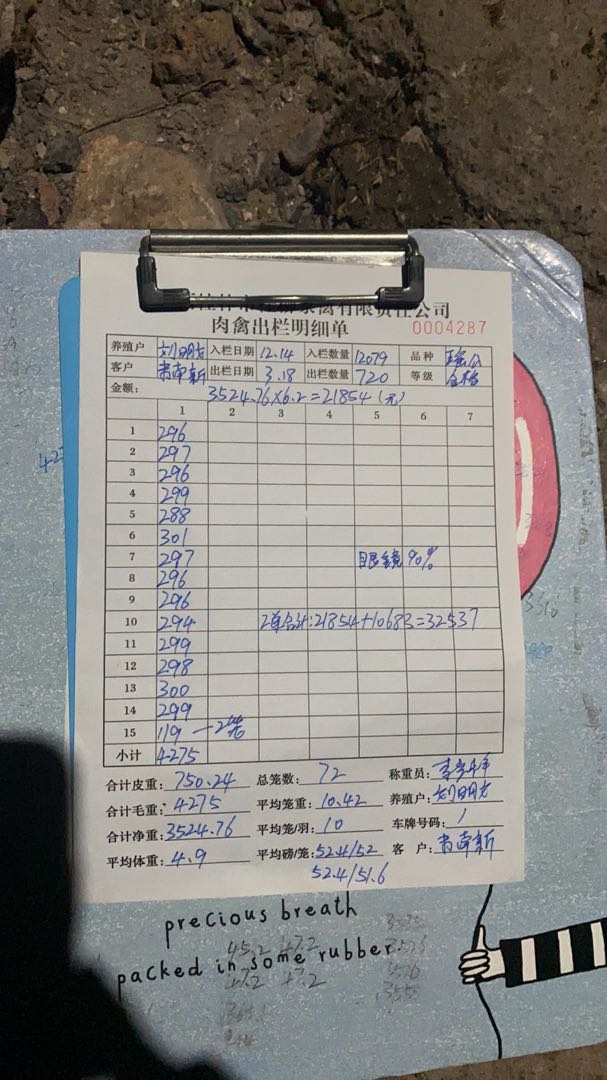 家禽有限责任公司
肉禽出栏明细单 0004287
养殖户 刘明龙 入栏日期 12.14 入栏数量 12079 品种
客户 韦革新 出栏日期 3.18 出栏数量 720 等级 合格
金额: 3524.76×6.2=21854(元)
1 2 3 4 5 6 7
1 296
2 297
3 296
4 299
5 288
6 301
7 297 眼镜90%
8 296
9 296
10 294 2单合计:21854+10683=32537
11 299
12 298
13 300
14 299
15 119 —2笼
小计 4275
合计皮重: 750.24 总笼数: 72 称重员:
合计毛重: 4275 平均笼重: 10.42 养殖户: 刘明龙
合计净重: 3524.76 平均笼/羽: 10 车牌号码: 1
平均体重: 4.9 平均磅/笼: 52.4/52 客户: 韦革新
52.4/51.6
precious breath
45.2 47.2
packed in some rubber
47.2 47.2